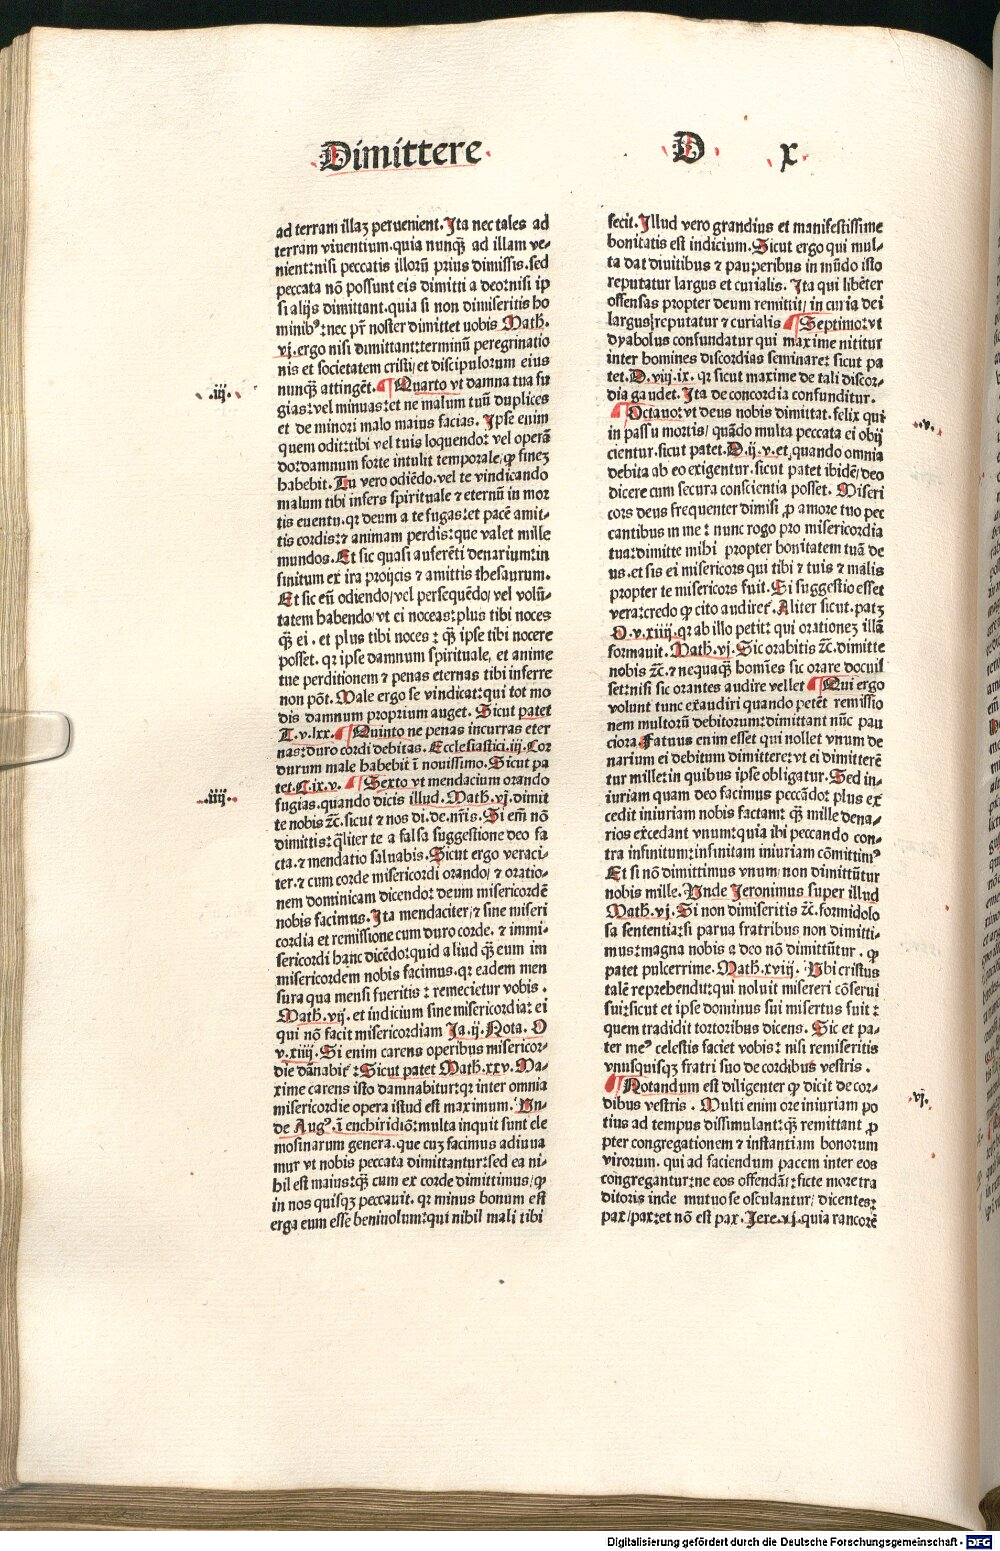 Dimittere D x
ad terram illaꝫ peruenient. Ita nec tales ad
terram viuentium. quia nunqꝫ̄ ad illam ve-
nient: nisi peccatis illorū prius dimissis. sed
peccata nō possunt eis dimitti a deo: nisi ip
si alijs dimittant. quia si non dimiseritis ho
minibꝰ: nec pr̄ noster dimittet vobis Math.
vj. ergo nisi dimittant: terminū peregrinatio
nis et societatem cristi/ et discipulorum eius
nunqꝫ̄ attingēt. ¶ Quarto vt damna tua fu
.iij.
gias: vel minuas: et ne malum tuū duplices
et de minori malo maius facias. Ipse enim
quem odit: tibi vel tuis loquendo: vel operā
do: damnum forte intulit temporale/ ꝙ fineꝫ
habebit. Tu vero odiēdo. vel te vindicando
malum tibi infers spirituale ⁊ eternū in mor
tis euentu. qꝛ deum a te fugas: et pacē amit-
tis cordis: ⁊ animam perdis: que valet mille
mundos. Et sic quasi auferēti denarium: in
finitum ex ira proijcis ⁊ amittis thesaurum.
Et sic eū odiendo/ vel persequēdo/ vel volū-
tatem habendo/ vt ei noceas: plus tibi noces
qꝫ̄ ei. et plus tibi noces: qꝫ̄ ipse tibi nocere
posset. qꝛ ipse damnum spirituale, et anime
tue perditionem ⁊ penas eternas tibi inferre
non pōt. Male ergo se vindicat: qui tot mo
dis damnum proprium auget. Sicut patet
T. v. lxx. ¶ Quinto ne penas incurras eter
nas: duro cordi debitas. Ecclesiastici. iij. Cor
durum male habebit ī nouissimo. Sicut pa
tet. C. ix. v. ¶ Sexto vt mendacium orando
.iiij.
fugias. quando dicis illud. Math. vj. dimit
te nobis ⁊c̄. sicut ⁊ nos di. de. nr̄is. Si em̄ nō
dimittis: q̄liter te a falsa suggestione deo fa
cta. ⁊ mendatio saluabis. Sicut ergo veraci-
ter. ⁊ cum corde misericordi orando/ ⁊ oratio-
nem dominicam dicendo: deum misericordē
nobis facimus. Ita mendaciter/ ⁊ sine miseri
cordia et remissione cum duro corde. ⁊ immi-
sericordi hanc dicēdo: quid aliud qꝫ̄ eum im
misericordem nobis facimus. qꝛ eadem men
sura qua mensi fueritis: remecietur vobis.
Math. vij. et iudicium sine misericordia: ei
qui nō facit misericordiam Ja. ij. Nota. O
v. xiiij. Si enim carens operibus misericor-
die dānabit̄: Sicut patet Math. xxv. Ma-
xime carens isto damnabitur: qꝛ inter omnia
misericordie opera istud est maximum. Vn-
de Augꝰ. ī enchiridiō: multa inquit sunt ele
mosinarum genera. que cuꝫ facimus adiuua
mur vt nobis peccata dimittantur: sed ea ni-
hil est maius: qꝫ̄ cum ex corde dimittimus/ ꝙ
in nos quisqꝫ peccauit. qꝛ minus bonum est
erga eum esse beniuolum: qui nihil mali tibi
fecit. Illud vero grandius et manifestissime
bonitatis est indicium. Sicut ergo qui mul-
ta dat diuitibus ⁊ pauperibus in mūdo isto
reputatur largus et curialis. Ita qui libēter
offensas propter deum remittit/ in curia dei
largus reputatur ⁊ curialis ¶ Septimo: vt
dyabolus confundatur qui maxime nititur
inter homines discordias seminare: sicut pa
tet. D. viij. ix. qꝛ sicut maxime de tali discor-
dia gaudet. Ita de concordia confunditur.
¶ Octauo: vt deus nobis dimittat. felix qui
.v.
in passu mortis/ quādo multa peccata ei obij
cientur. sicut patet. D. ij. v. et quando omnia
debita ab eo exigentur. sicut patet ibidē/ deo
dicere cum secura conscientia posset. Miseri
cors deus frequenter dimisi ꝓ amore tuo pec
cantibus in me: nunc rogo pro misericordia
tua: dimitte mihi propter bonitatem tuā de
us. et sis ei misericors qui tibi ⁊ tuis ⁊ malis
propter te misericors fuit. Si suggestio esset
vera: credo ꝙ cito audiret̄. Aliter sicut. patꝫ
O. v. xiiij. qꝛ ab illo petit: qui orationeꝫ illā
formauit. Math. vj. Sic orabitis ⁊c̄. dimitte
nobis ⁊c̄. ⁊ nequaqꝫ̄ homīes sic orare docuis
set: nisi sic orantes audire vellet ¶ Qui ergo
volunt tunc exaudiri quando petēt remissio
nem multorū debitorum: dimittant nūc pau
ciora. Fatuus enim esset qui nollet vnum de
narium ei debitum dimittere: vt ei dimitterē
tur mille: in quibus ipse obligatur. Sed in-
iuriam quam deo facimus peccādo: plus ex
cedit iniuriam nobis factam: qꝫ̄ mille dena-
rios excedant vnum: quia ibi peccando con-
tra infinitum: infinitam iniuriam cōmittimꝰ
Et si nō dimittimus vnum/ non dimittūtur
nobis mille. Vnde Jeronimus super illud
Math. vj. Si non dimiseritis ⁊c̄. formidolo
sa sententia: si parua fratribus non dimitti-
mus: magna nobis a deo nō dimittūtur. ꝙ
patet pulcerrime. Math. xviij. Vbi cristus
talē reprehendit: qui noluit misereri cōserui
sui: sicut et ipse dominus sui misertus fuit:
quem tradidit tortoribus dicens. Sic et pa-
ter meꝰ celestis faciet vobis: nisi remiseritis
vnusquisqꝫ fratri suo de cordibus vestris.
¶ Notandum est diligenter ꝙ dicit de cor-
.vj.
dibus vestris. Multi enim ore iniuriam po
tius ad tempus dissimulant: qꝫ̄ remittant ꝓ
pter congregationem ⁊ instantiam bonorum
virorum. qui ad faciendum pacem inter eos
congregantur: ne eos offendāt: ficte more tra
ditoris inde mutuo se osculantur/ dicentes:
pax/ pax: et nō est pax. Jere. vj. quia rancorē
Digitalisierung gefördert durch die Deutsche Forschungsgemeinschaft - DFG